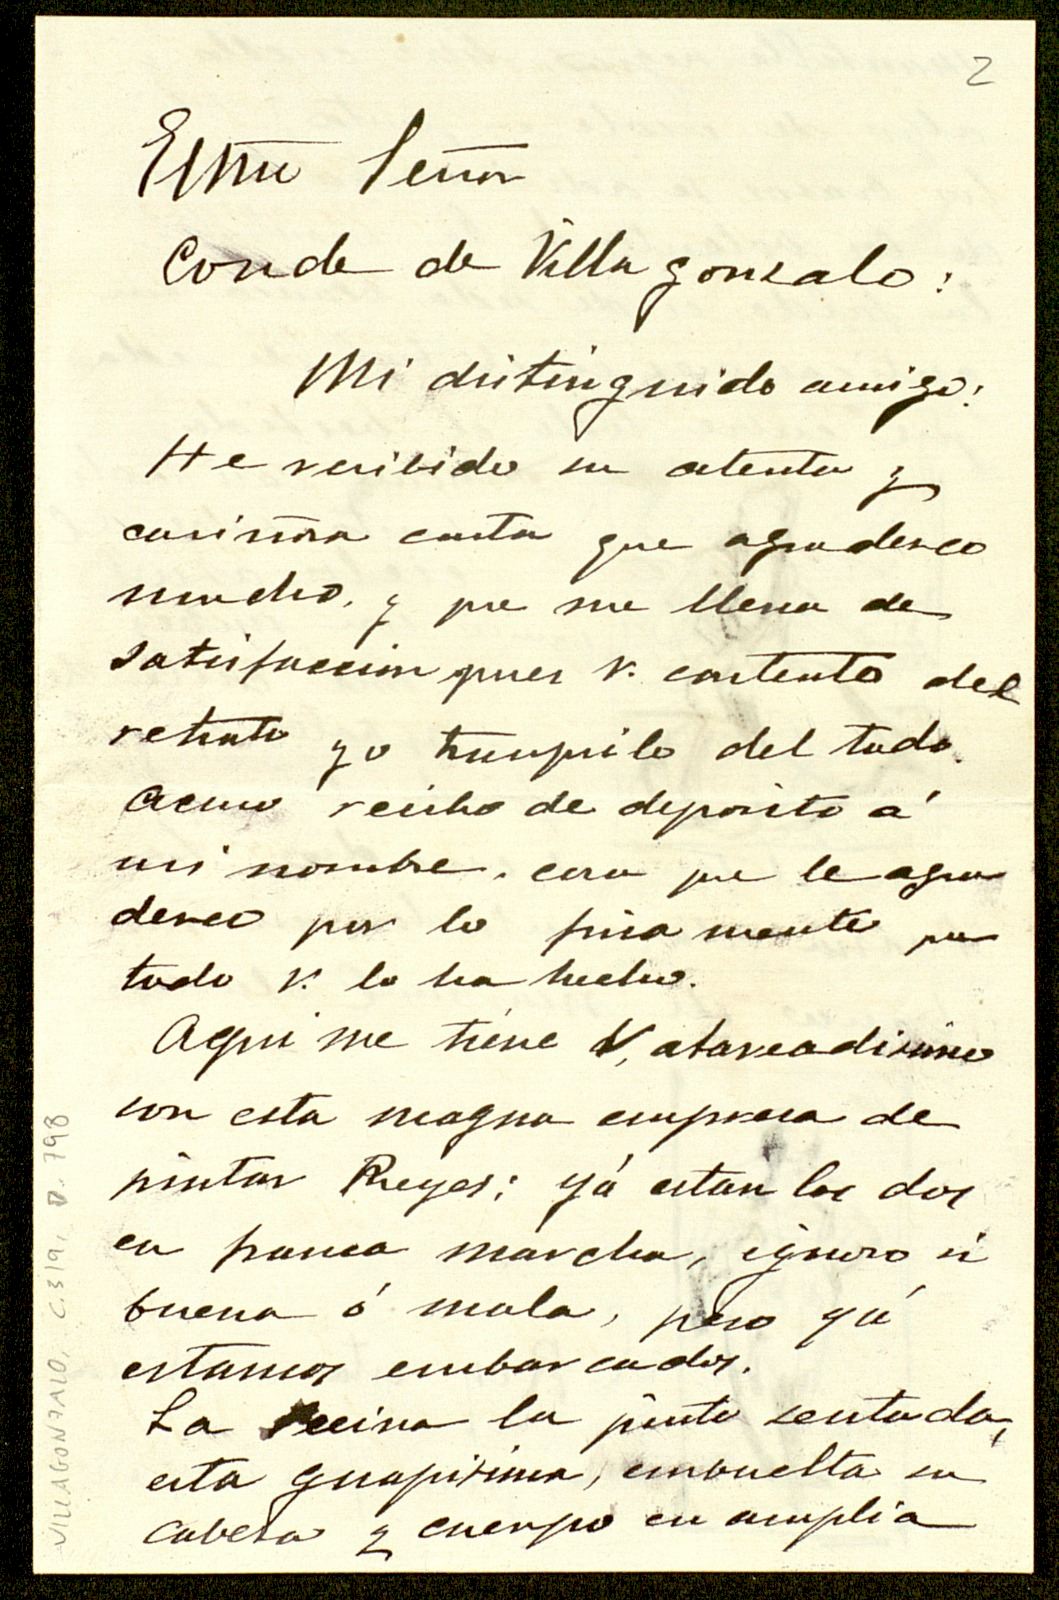 2
Exmo Señor
Conde de Villagonzalo:
Mi distinguido amigo:
He recibido su atenta y
cariñosa carta que agradezco
mucho, y que me llena de
satisfaccion pues V. contento del
retrato yo tranquilo del todo.
Acuso recibo de deposito á
mi nombre, cosa que le agra
dezco por lo fina mente que
todo V. lo ha hecho.
Aqui me tiene V, atareadisimo
con esta magna empresa de
pintar Reyes; yá estan los dos
en franca marcha, ignoro si
buena ó mala, pero yá
estamos embarcados.
La Reina la pinto sentada,
esta guapisima, embuelta su
cabeza y cuerpo en amplia
VILLAGONZALO, C.319, D. 798